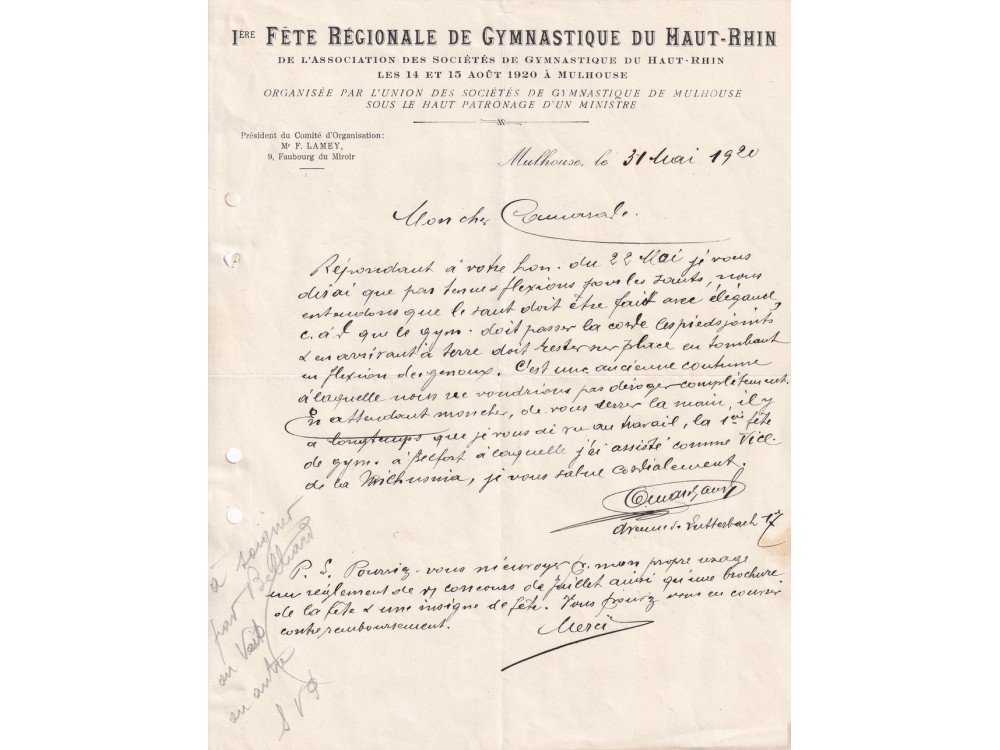 IÈRE FÊTE RÉGIONALE DE GYMNASTIQUE DU HAUT-RHIN
DE L'ASSOCIATION DES SOCIÉTÉS DE GYMNASTIQUE DU HAUT-RHIN
LES 14 ET 15 AOÛT 1920 À MULHOUSE
ORGANISÉE PAR L'UNION DES SOCIÉTÉS DE GYMNASTIQUE DE MULHOUSE
SOUS LE HAUT PATRONAGE D'UN MINISTRE
Président du Comité d'Organisation:
Mr F. LAMEY,
9, Faubourg du Miroir
Mulhouse, le 31 Mai 1920
Mon cher Camarade.
Répondant à votre hon. du 22 Mai je vous
dirai que par tenue & flexions pour les sauts, nous
entendons que le saut doit être fait avec élégance,
c. à d que le gym. doit passer la corde les pieds joints
& en arrivant à terre doit rester sur place en tombant
en flexion des genoux. C'est une ancienne coutume
à laquelle nous ne voudrions pas déroger complètement.
En attendant mon cher, de vous serrer la main, il y
a longtemps que je vous ai vu au travail, la 1ère fête
de gym. à Belfort à laquelle j'ai assisté comme Vice.
de la je vous salue cordialement.
Avenue de Lutterbach 17
P. S. Pourriez-vous m'envoyer p. mon propre usage
un règlement de concours de Juillet ainsi qu'une brochure
de la fête & une insigne de fête. Vous pouvez vous en couvrir
contre remboursement. Merci
à soigner
par
ou
ou autre
S V P